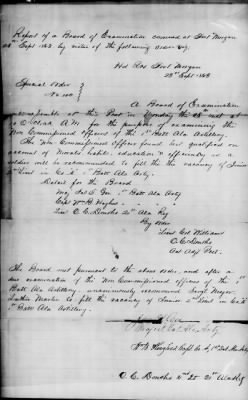 Report of a Board of Examination convened at Fort Morgan
Sept 1863 by virtue of the following order viz;
Hd Qrs Fort Morgan
25th Sept 1863
Special Order
No
A Board of Examination
will at this Post on Monday the 28 inst at
O'Clock A.M. for the purpose of examining the
Non Commissioned Officers of the 1st Batt Ala Artillery.
The Non Commissioned Officer found best qualified on
account of Morals, habits, education & efficiency as a
soldier will be recommended to fill the vacancy of Junior
2d Lieut in Co "A" 1st Batt Ala Arty.
Detail for the Board
Maj Batt Ala Arty
Capt Wm H Hughes
Lieu O. C. 21st Ala Reg
By order
Lieut Col Williams
O. C.
Act Adj Post.
The Board met pursuant to the above order, and after a
due examination of the Non Commissioned officers of the 1st
Batt Ala Artillery, unanimously recommend Sergt Major
Luther Martin to fill the vacancy of Junior 2d Lieut in Co A
1st Batt Ala Artillery.
Major
Capt Co A, 1st Bat Ala Arty
O. C. 21st Ala Reg